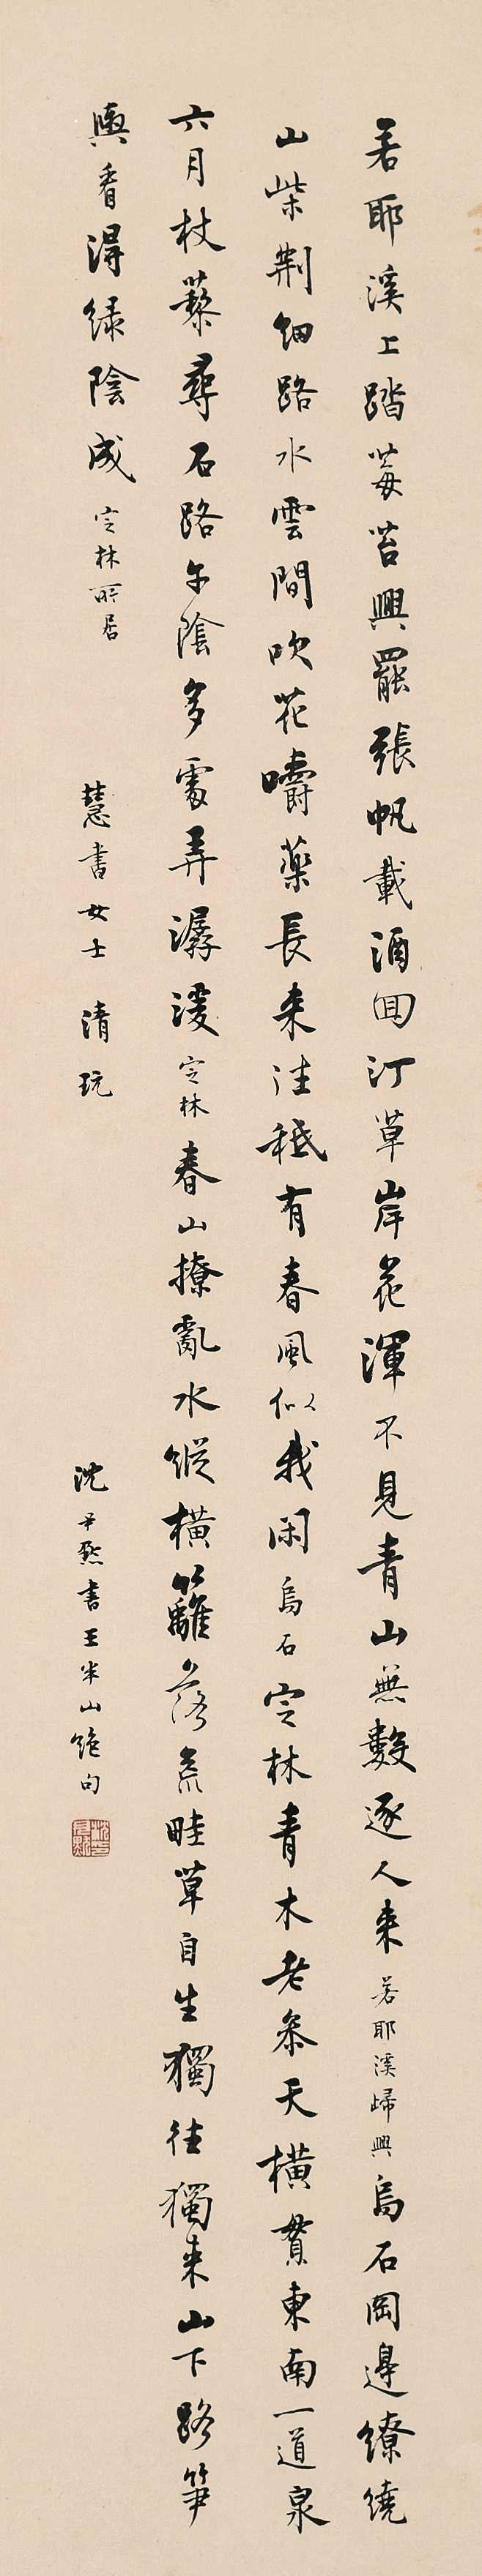 若耶溪上踏莓苔興罷張帆載酒回汀草岸花渾不見青山無數逐人来若耶溪歸興烏石岡邊繚繞
山柴荆細路水雲間吹花嚼蕊長来往秖有春風似我閑烏石定林青木老參天橫貫東南一道泉
六月杖藜尋石路午陰多處弄潺湲定林春山撩亂水縱橫籬落荒畦草自生獨往獨来山下路筍
輿看得绿陰成定林所居
慧書女士 清玩
沈尹默書王半山絶句
沈尹默